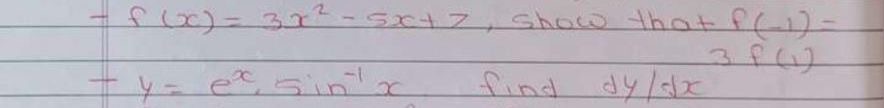 - f(x) = 3x² - 5x + 7, show that f(-1) =
3 f(1)
- y = eˣ. sin⁻¹ x find dy/dx